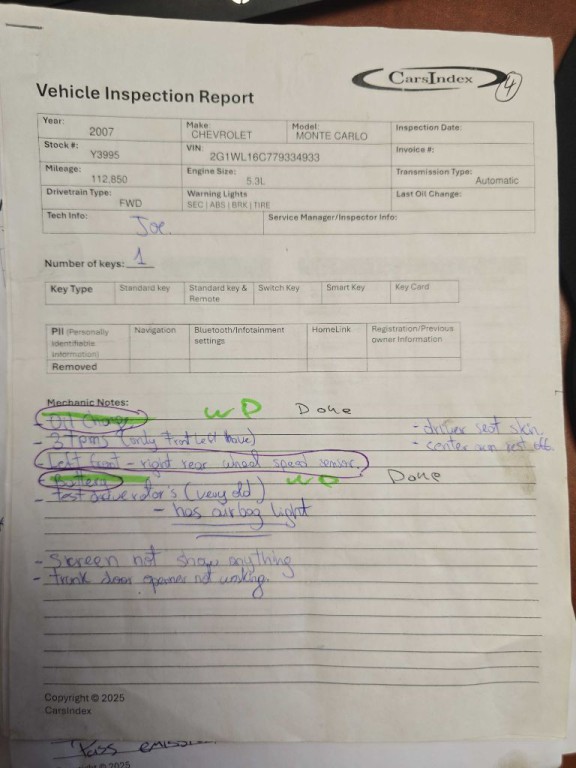 CarsIndex
4
Vehicle Inspection Report
Year: 2007 Make: CHEVROLET Model: MONTE CARLO Inspection Date:
Stock #: Y3995 VIN: 2G1WL16C779334933 Invoice #:
Mileage: 112,850 Engine Size: 5.3L Transmission Type: Automatic
Drivetrain Type: FWD Warning Lights SEC | ABS | BRK | TIRE Last Oil Change:
Tech Info: Joe. Service Manager/Inspector Info:
Number of keys: 1
Key Type Standard key Standard key & Remote Switch Key Smart Key Key Card
PII (Personally Identifiable Information) Navigation Bluetooth/Infotainment settings HomeLink Registration/Previous owner Information
Removed
Mechanic Notes:
- Oil Change WP Done - driver seat skin.
- 3 tpms (only front left have) - center arm rest off.
- Left front - right rear wheel speed sensor.
- Battery WP Done
- test drive (very old)
- has airbag light
- screen not show anything
- trunk door opener not working.
Copyright © 2025
CarsIndex
Pass
© 2025